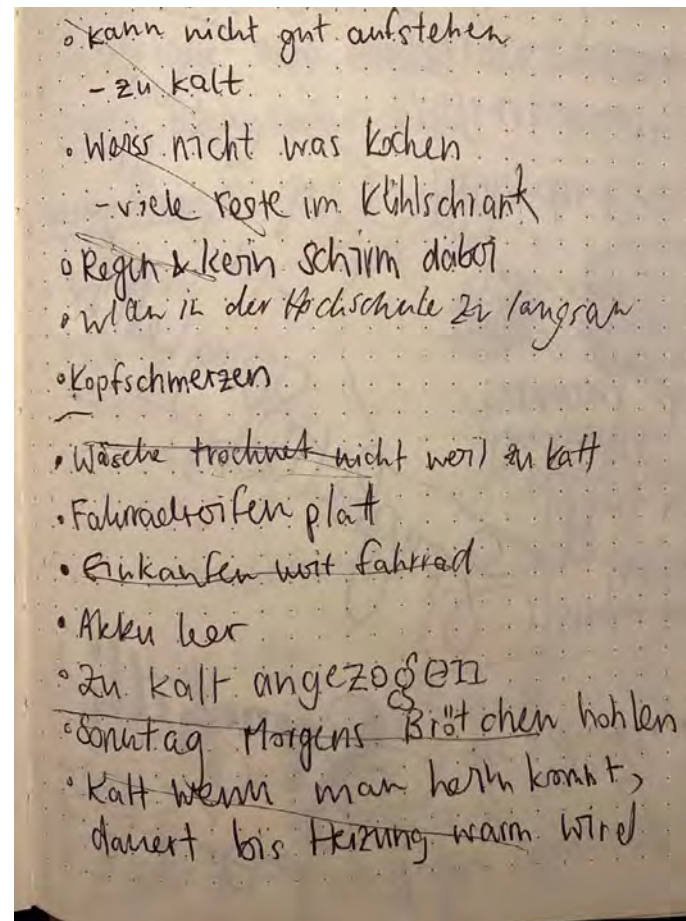 ◦ kann nicht gut aufstehen
- zu kalt
• Weiss nicht was kochen
- viele reste im Kühlschrank
◦ Regen & kein schirm dabei
• wlan in der Hochschule zu langsam
• Kopfschmerzen
• Wäsche trocknet nicht weil zu kalt
• Fahrradreifen platt
• Einkaufen mit fahrrad
• Akku leer
◦ Zu kalt angezogen
◦ Sonntag Morgens Brötchen hohlen
• Kalt wenn man heim kommt,
dauert bis Heizung warm wird